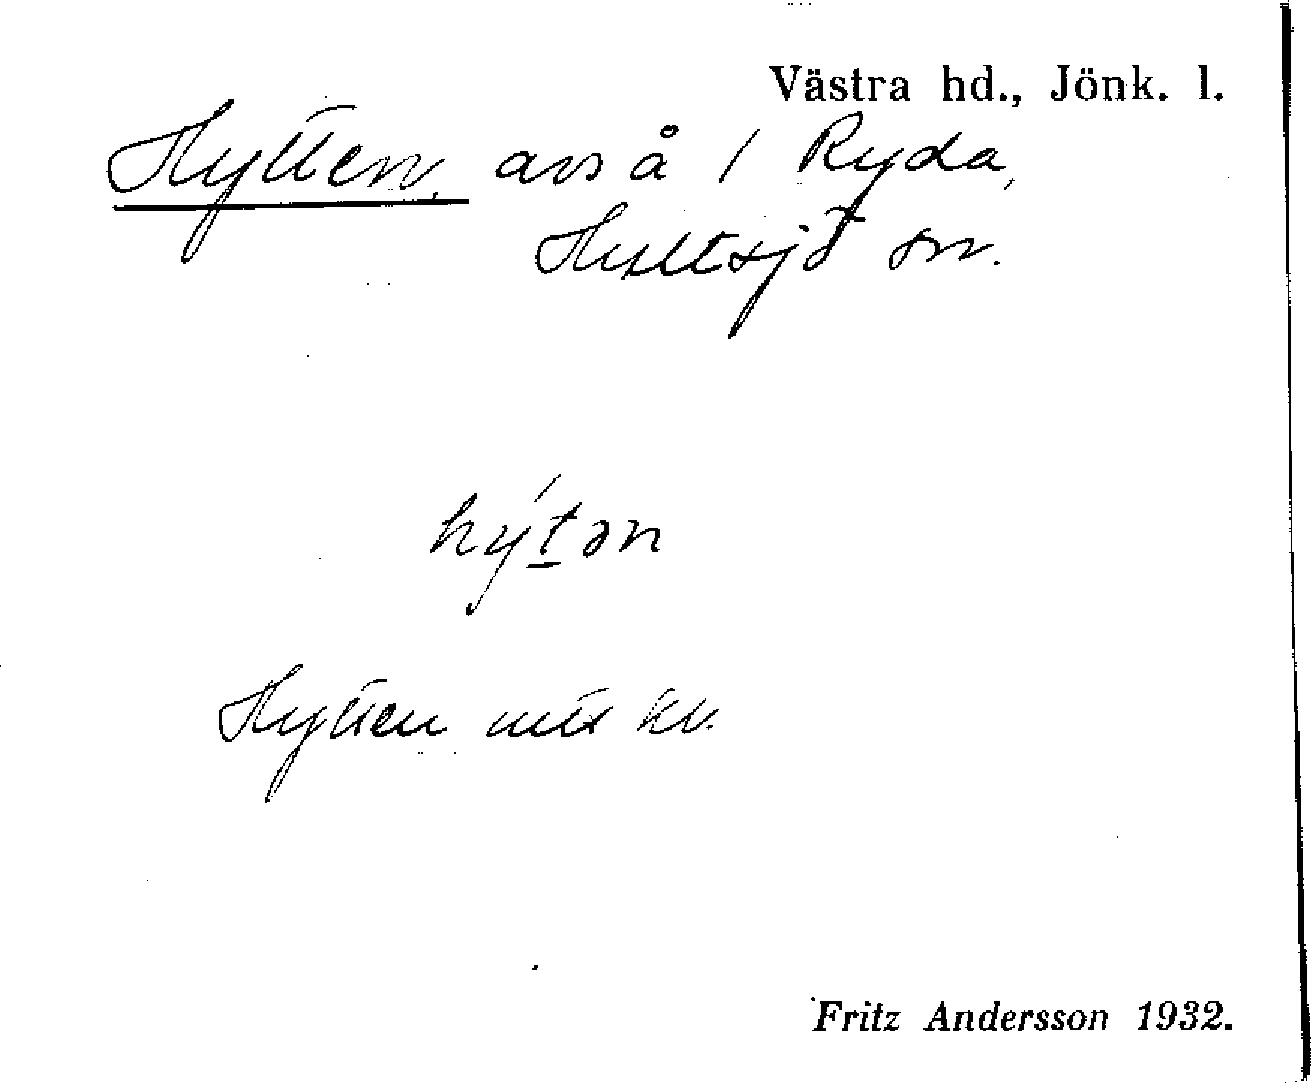 Västra hd., Jönk. l.
Hytten, avs å 1 Ryda,
Hultsjö sn.
hýtən
Hytten mtr kv.
Fritz Andersson 1932.